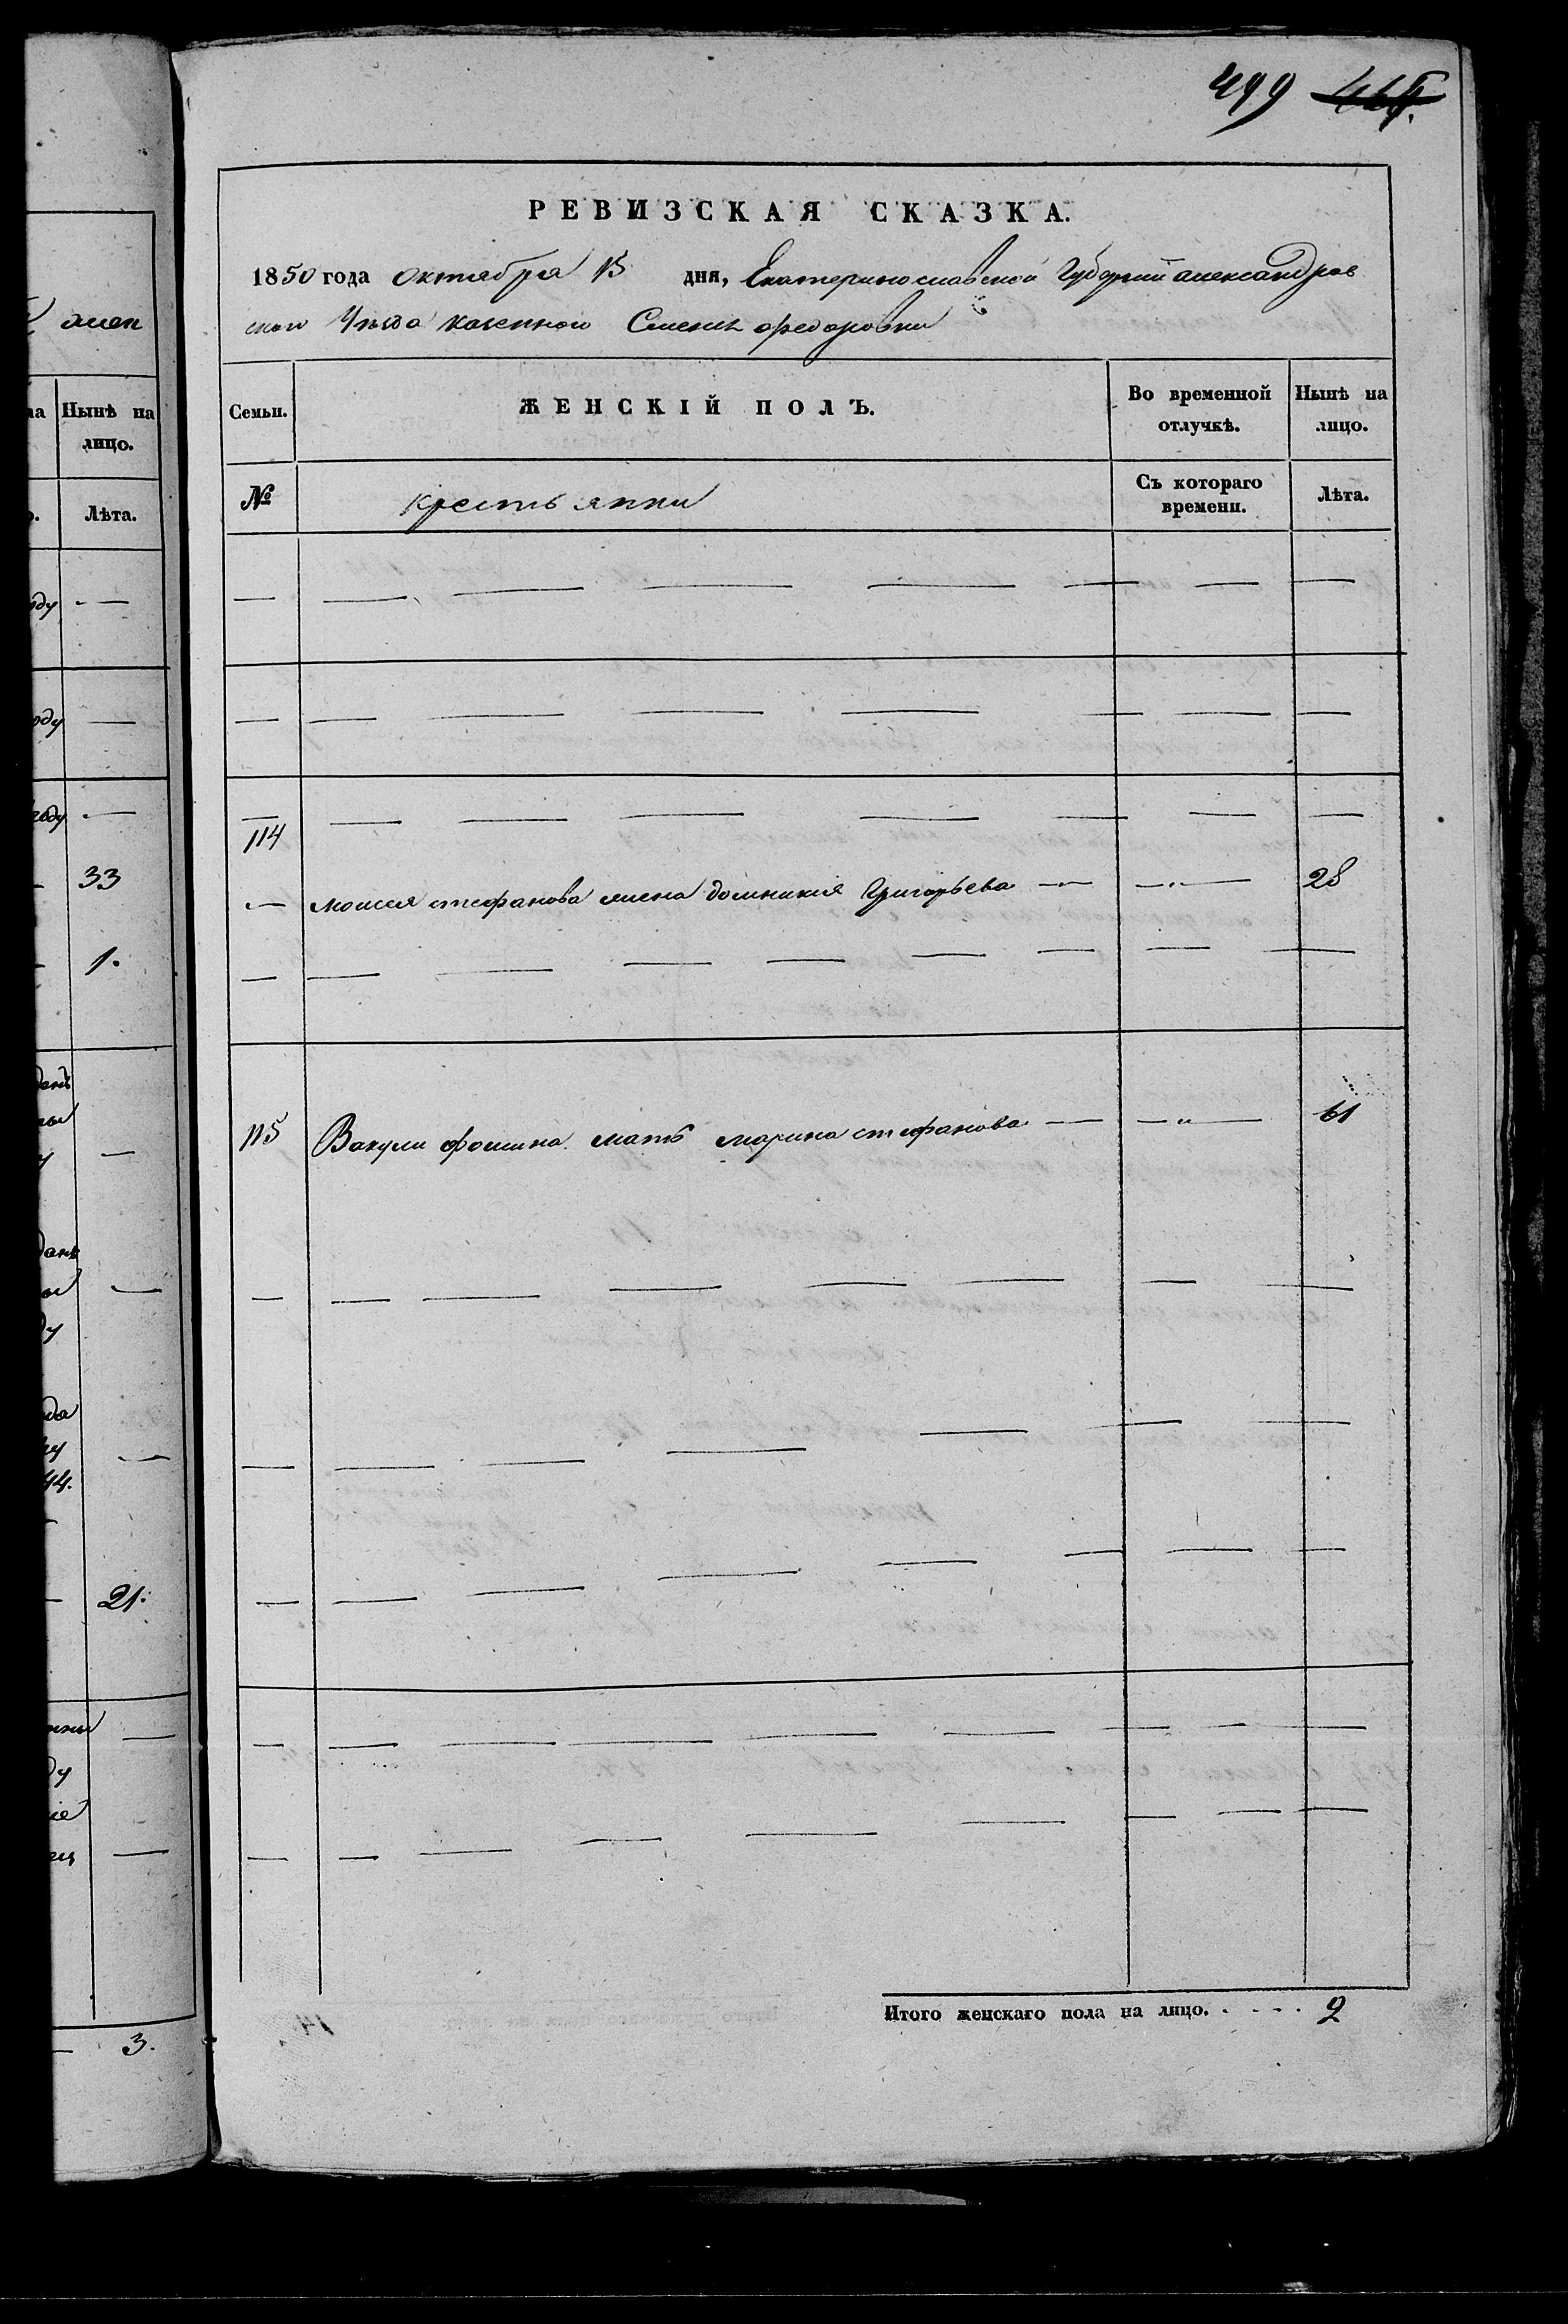 499
РЕВИЗСКАЯ СКАЗКА.
1850 года октября 13 дня, Екатеринославской Губернии александров
ского Уѣзда казенной Слободы федоровки
Семьи. ЖЕНСКІЙ ПОЛЪ. Во временной отлучкѣ. Нынѣ на лицо.
№ крестьянки Съ котораго времени. Лѣта.
114
моисея стефанова жена домникия Григорьева 28
115 Вакулы фомина мать марина стефанова 61
Итого женскаго пола на лицо. 2
Нынѣ на
лицо.
Лѣта.
33
1.
44.
21.
3.